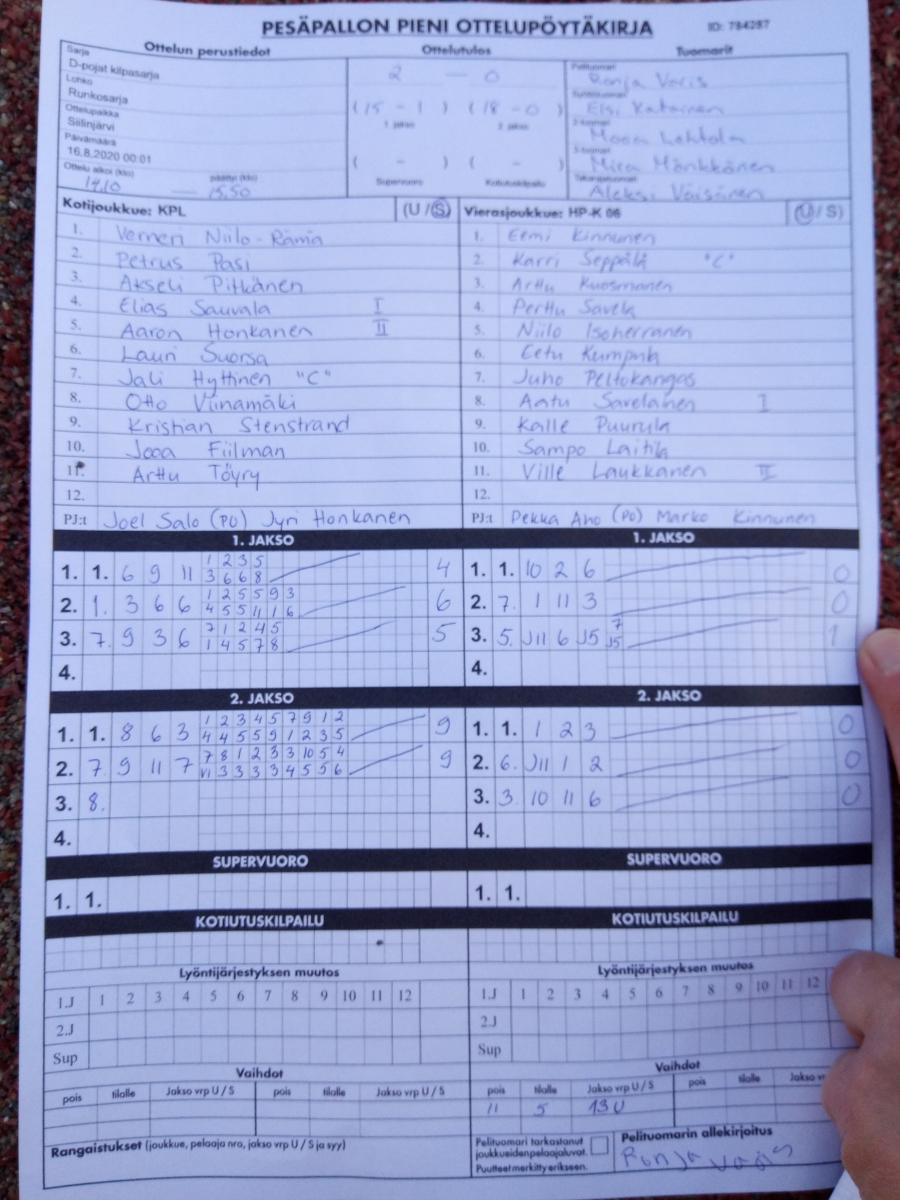 PESÄPALLON PIENI OTTELUPÖYTÄKIRJA ID: 784287
Ottelun perustiedot Ottelutulos Tuomarit
Sarja
D-pojat kilpasarja
Lohko
Runkosarja
Ottelupaikka
Siilinjärvi
Päivämäärä
16.8.2020 00:01
Ottelu alkoi (klo) päättyi (klo)
14.10 — 15.50
2 — 0
(15 - 1) (18 - 0)
1. jakso 2. jakso
( - ) ( - )
Supervuoro Kotiutuskilpailu
Pelituomari
Ronja Voris
Elsi Katainen
2-tuomari
Moona Lehtola
3-tuomari
Miea Mönkkönen
Takarajatuomari
Aleksi Väisänen
Kotijoukkue: KPL (U/S)
1. Verneri Niilo-Rämä
2. Petrus Pasi
3. Akseli Pitkänen
4. Elias Sauvala I
5. Aaron Honkanen II
6. Lauri Suorsa
7. Jali Hyttinen "C"
8. Otto Viinamäki
9. Kristian Stenstrand
10. Jooa Fiilman
11. Arttu Töyry
12.
PJ:t Joel Salo (PO) Jyri Honkanen
Vierasjoukkue: HP-K 06 (U/S)
1. Eemi Kinnunen
2. Karri Seppälä "C"
3. Arttu Kuosmanen
4. Perttu Savela
5. Niilo Isoherranen
6. Eetu Kumpula
7. Juho Peltokangas
8. Aatu Savelainen I
9. Kalle Puurula
10. Sampo Laitila
11. Ville Laukkanen II
12.
PJ:t Pekka Aho (PO) Marko Kinnunen
1. JAKSO
1. 1. 6 9 11 1 2 3 5 4
3 6 6 8
2. 1. 3 6 6 1 2 5 5 9 3 6
4 5 5 11 1 6
3. 7. 9 3 6 7 1 2 4 5 5
1 4 5 7 8
4.
1. JAKSO
1. 1. 10 2 6 0
2. 7. 1 11 3 0
3. 5. J11 6 J5 7 1
J5
4.
2. JAKSO
1. 1. 8 6 3 1 2 3 4 5 7 9 1 2 9
4 4 5 5 9 1 2 3 5
2. 7. 9 11 7 7 8 1 2 3 3 10 5 4 9
VI 3 3 3 3 4 5 5 6
3. 8.
4.
2. JAKSO
1. 1. 1 2 3 0
2. 6. J11 1 2 0
3. 3. 10 11 6 0
4.
SUPERVUORO
1. 1.
SUPERVUORO
1. 1.
KOTIUTUSKILPAILU
KOTIUTUSKILPAILU
Lyöntijärjestyksen muutos
1.J 1 2 3 4 5 6 7 8 9 10 11 12
2.J
Sup
Lyöntijärjestyksen muutos
1.J 1 2 3 4 5 6 7 8 9 10 11 12
2.J
Sup
Vaihdot
pois tilalle Jakso vrp U / S pois tilalle Jakso vrp U / S
Vaihdot
pois tilalle Jakso vrp U / S pois tilalle Jakso
11 5 13U
Rangaistukset (joukkue, pelaaja nro, jakso vrp U / S ja syy)
Pelituomari tarkastanut
joukkueiden pelaajaluvat.
Puutteet merkitty erikseen.
Pelituomarin allekirjoitus
Ronja Voris